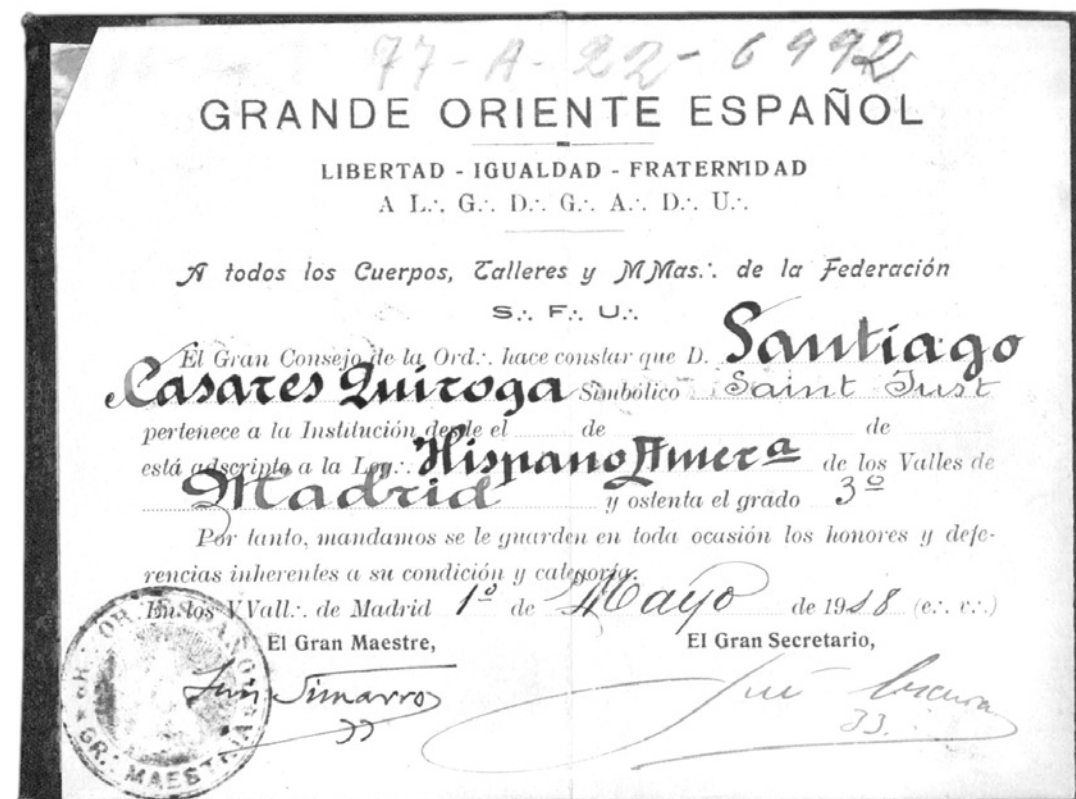 77-A-22-6992
GRANDE ORIENTE ESPAÑOL
LIBERTAD - IGUALDAD - FRATERNIDAD
A L.·. G.·. D.·. G.·. A.·. D.·. U.·.
A todos los Cuerpos, Talleres y MMas.·. de la Federación
S.·. F.·. U.·.
El Gran Consejo de la Ord.·. hace constar que D. Santiago
Casares Quiroga Simbólico Saint Just
pertenece a la Institución desde el de de
está adscripto a la Log.·. Hispano Amerª de los Valles de
Madrid y ostenta el grado 3º
Por tanto, mandamos se le guarden en toda ocasión los honores y defe-
rencias inherentes a su condición y categoría.
En los VVall.·. de Madrid 1º de Mayo de 1918 (e.·. v.·.)
El Gran Maestre, El Gran Secretario,
Luis Simarro
33
33.
GR. MAESTRIA